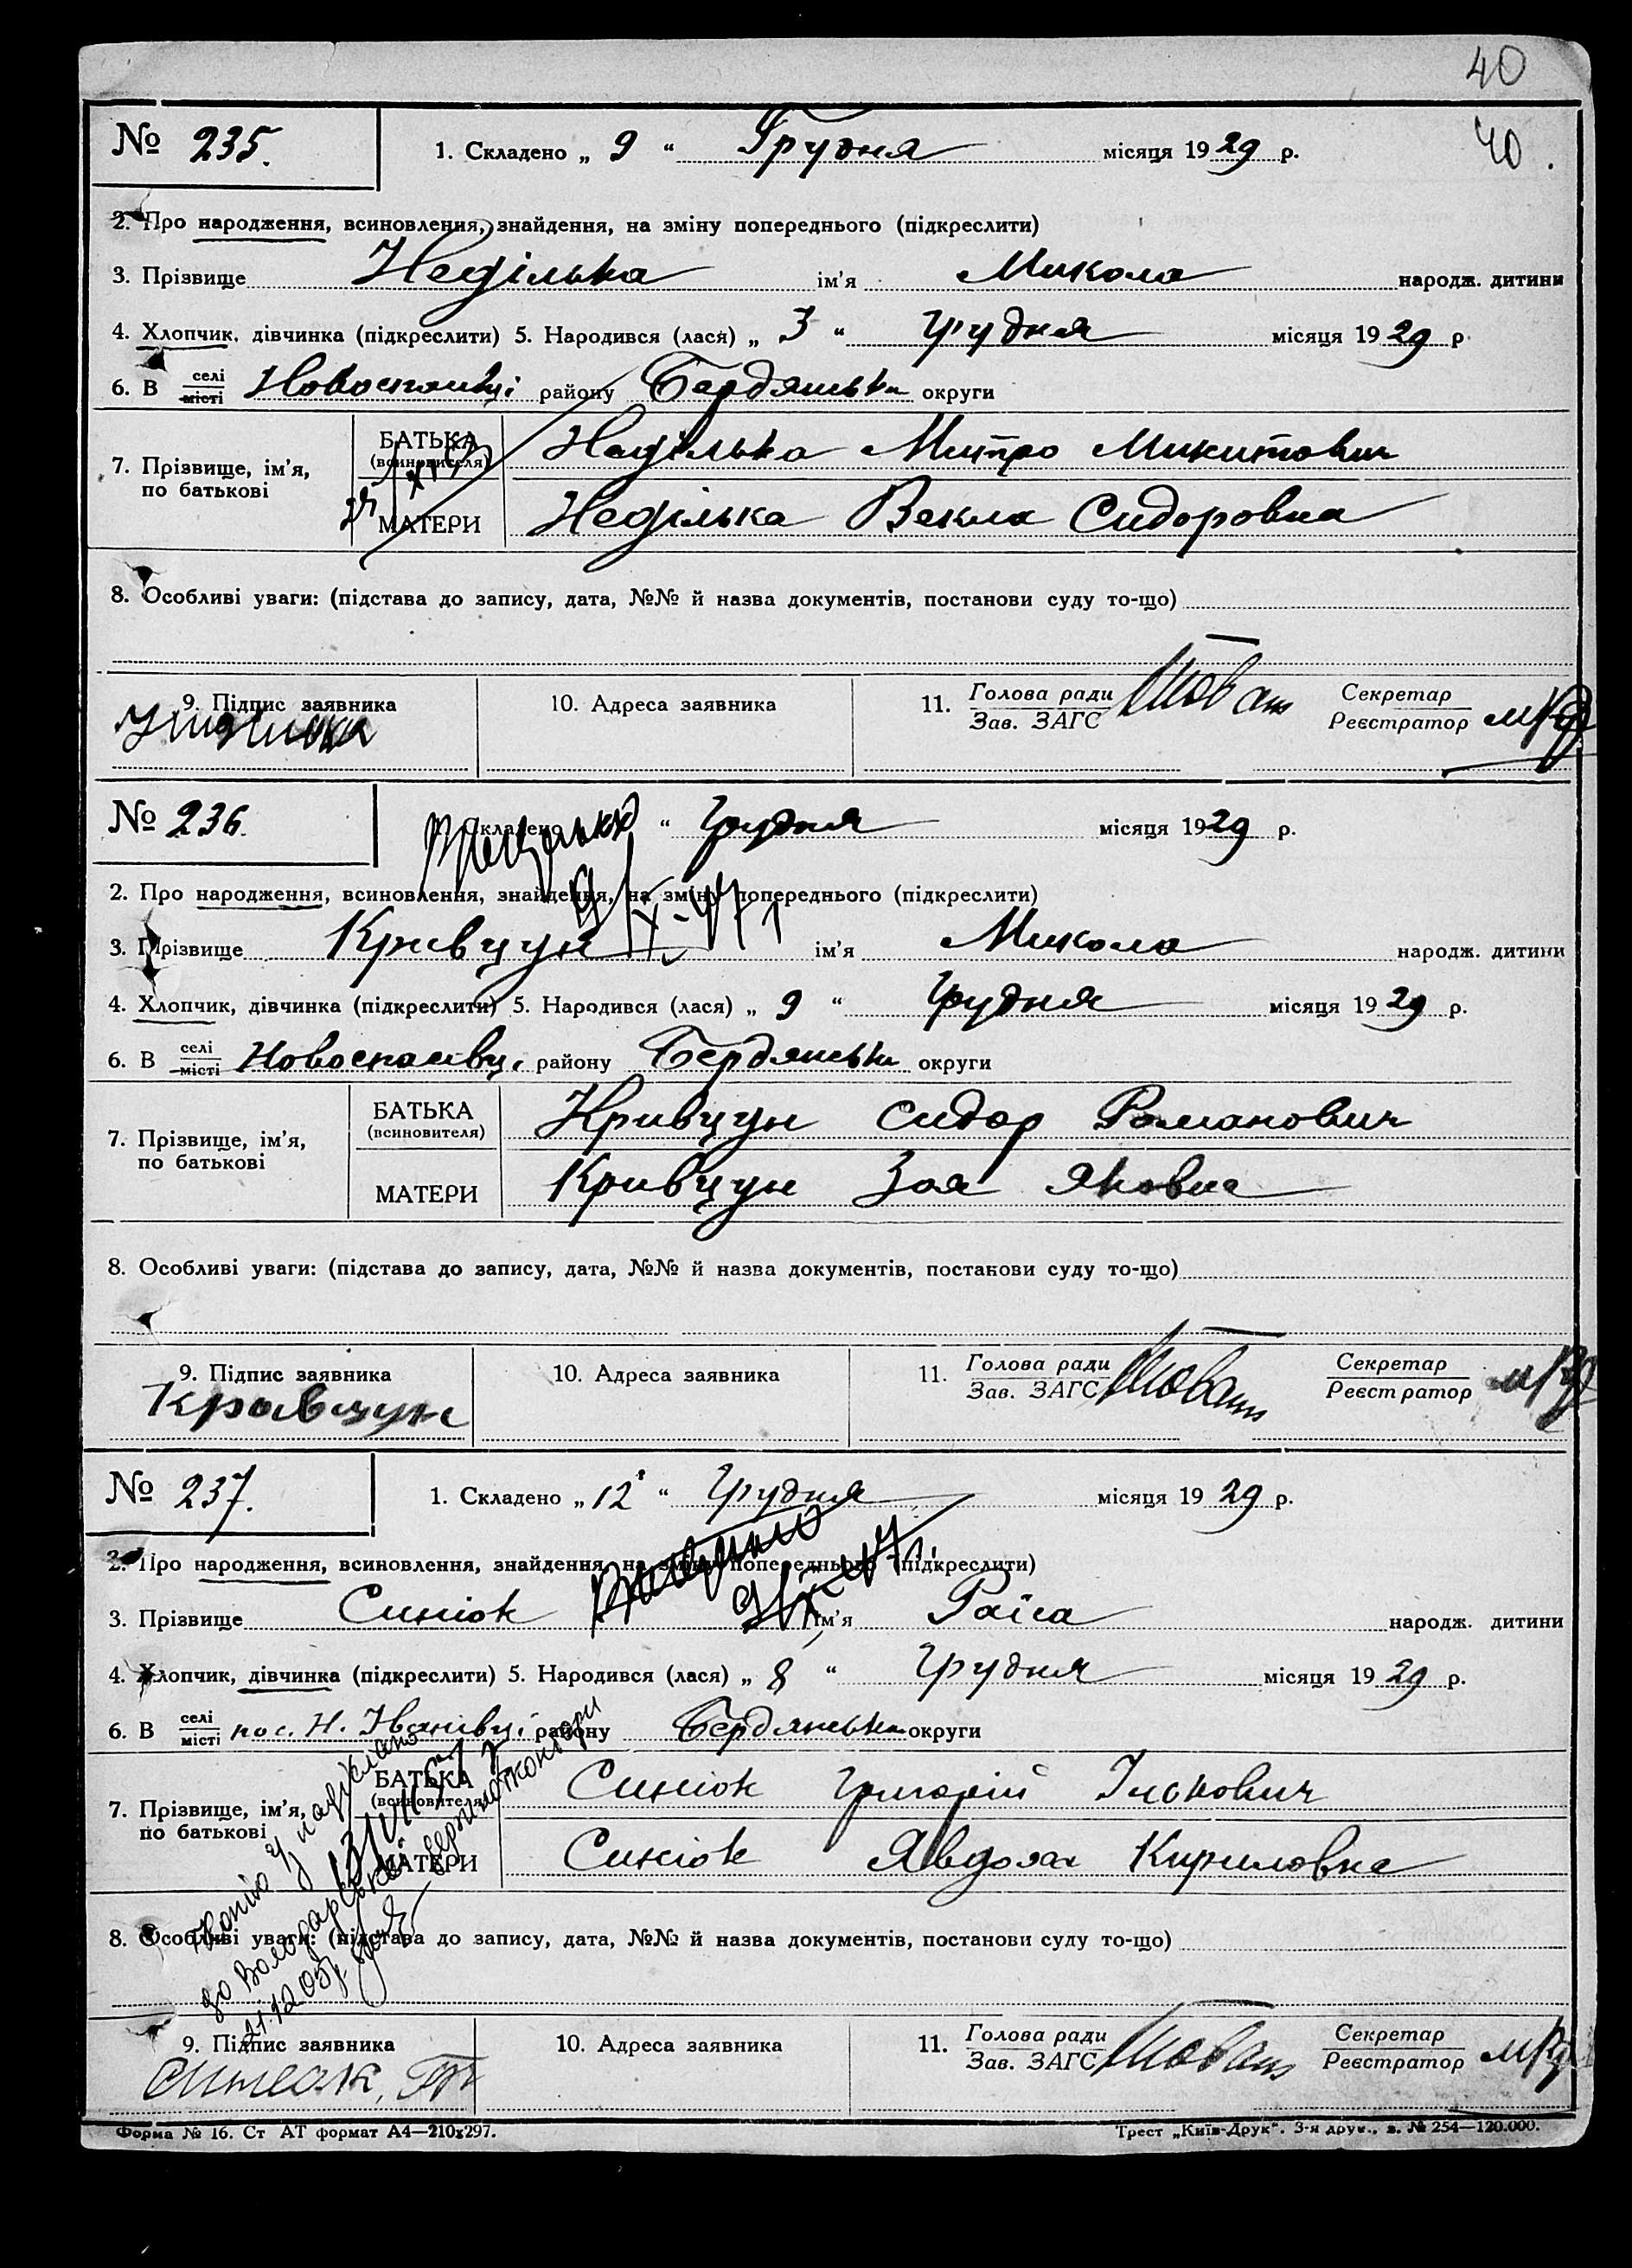 40
№ 235. 1. Складено „ 9 “ Грудня місяця 1929 р. 40.
2. Про народження, всиновлення, знайдення, на зміну попереднього (підкреслити)
3. Прізвище Неділька ім'я Микола народж. дитини
4. Хлопчик, дівчинка (підкреслити) 5. Народився (лася) „ 3 “ Грудня місяця 1929 р.
6. В селі місті Новоспасівці району Бердянськ. округи
7. Прізвище, ім'я, по батькові
БАТЬКА (всиновителя) Неділька Митро Микитович
МАТЕРИ Неділька Векла Сидоровна
8. Особливі уваги: (підстава до запису, дата, №№ й назва документів, постанови суду то-що)
9. Підпис заявника 10. Адреса заявника 11. Голова ради Зав. ЗАГС Секретар Реєстратор
№ 236. Складено “ Грудня місяця 1929 р.
2. Про народження, всиновлення, знайдення, на зміну попереднього (підкреслити)
3. Прізвище Кривцун ім'я Микола народж. дитини
4. Хлопчик, дівчинка (підкреслити) 5. Народився (лася) „ 9 “ Грудня місяця 1929 р.
6. В селі місті Новоспасівці району Бердянськ. округи
7. Прізвище, ім'я, по батькові
БАТЬКА (всиновителя) Кривцун Сидор Романович
МАТЕРИ Кривцун Зоя Яковна
8. Особливі уваги: (підстава до запису, дата, №№ й назва документів, постанови суду то-що)
9. Підпис заявника 10. Адреса заявника 11. Голова ради Зав. ЗАГС Секретар Реєстратор
Кравцун
№ 237. 1. Складено „ 12 “ Грудня місяця 1929 р.
2. Про народження, всиновлення, знайдення, на зміну попереднього (підкреслити)
3. Прізвище Синіок ім'я Раїса народж. дитини
4. Хлопчик, дівчинка (підкреслити) 5. Народився (лася) „ 8 “ Грудня місяця 1929 р.
6. В селі місті пос. Н. Іванівці району Бердянськ. округи
7. Прізвище, ім'я, по батькові
БАТЬКА (всиновителя) Синіок Григорій Ількович
МАТЕРИ Синіок Явдоха Кириловна
8. Особливі уваги: (підстава до запису, дата, №№ й назва документів, постанови суду то-що)
Копію надіслано
до Володарської держнотконтори
21.12.05р.
9. Підпис заявника 10. Адреса заявника 11. Голова ради Зав. ЗАГС Секретар Реєстратор
Форма № 16. Ст АТ формат А4—210х297. Трест „Київ-Друк“. 3-я друк., з. № 254—120.000.